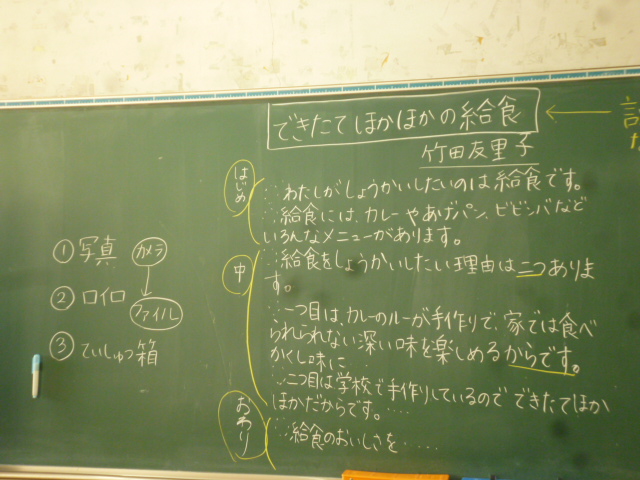 できたてほかほかの給食
竹田友里子
はじめ
わたしがしょうかいしたいのは給食です。
給食には、カレーやあげパン、ビビンバなど
いろんなメニューがあります。
中
給食をしょうかいしたい理由は二つありま
す。
一つ目は、カレーのルーが手作りで、家では食べ
られられない深い味を楽しめるからです。
かくし味に…
二つ目は学校で手作りしているので できたてほか
ほかだからです。….
おわり
給食のおいしさを ‥‥
① 写真 カメラ
② ロイロ ファイル
③ ていしゅつ箱